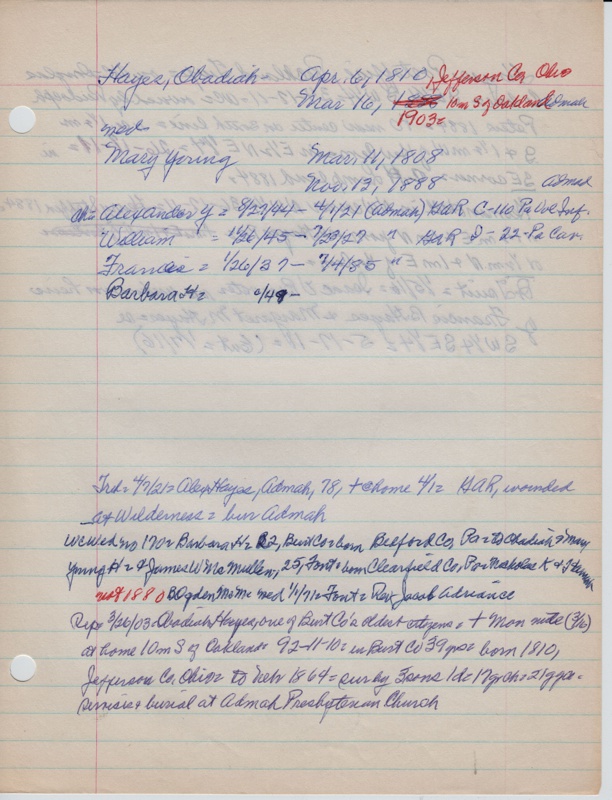 Hayes, Obadiah - Apr. 6, 1810, Jefferson Co, Ohio
Mar 16, 1903= 10m S of Oakland Admah
med
Mary Young Mar. 11, 1808
Nov. 13, 1888 Admah
ch= Alexander Y = 8/27/44 - 4/1/21 (Admah) GAR C-110 Pa Vol Inf.
William = 11/26/45 - 7/29/27 " GAR - I - 22-Pa Cav.
Francis = 1/26/37 - 7/4/85 "
Barbara H = /49 -
Trib= 4/7/21= Alex Hayes, Admah, 78, + @ home 4/1= GAR, wounded
at Wilderness = bur Admah
WC Wed no 170= Barbara H= 22, Burt Co= born Bedford Co, Pa= to Obadiah & Mary
Young H= & James W McMullen, 25, Font= born Clearfield Co, Pa= Nicholas K &
not 1880 B Ogden McM= med 1/1/71= Font= Rev Jacob Adriance
Rep= 3/26/03= Obadiah Hayes, one of Burt Co's oldest citizens = + Mon nite (3/16)
at home 10m S of Oakland= 92-11-10= in Burt Co 39 yrs= born 1810,
Jefferson Co. Ohio= to Nebr 1864= sur by 3 sons 1d= 17 grch= 21 ggch=
services & burial at Admah Presbyterian Church